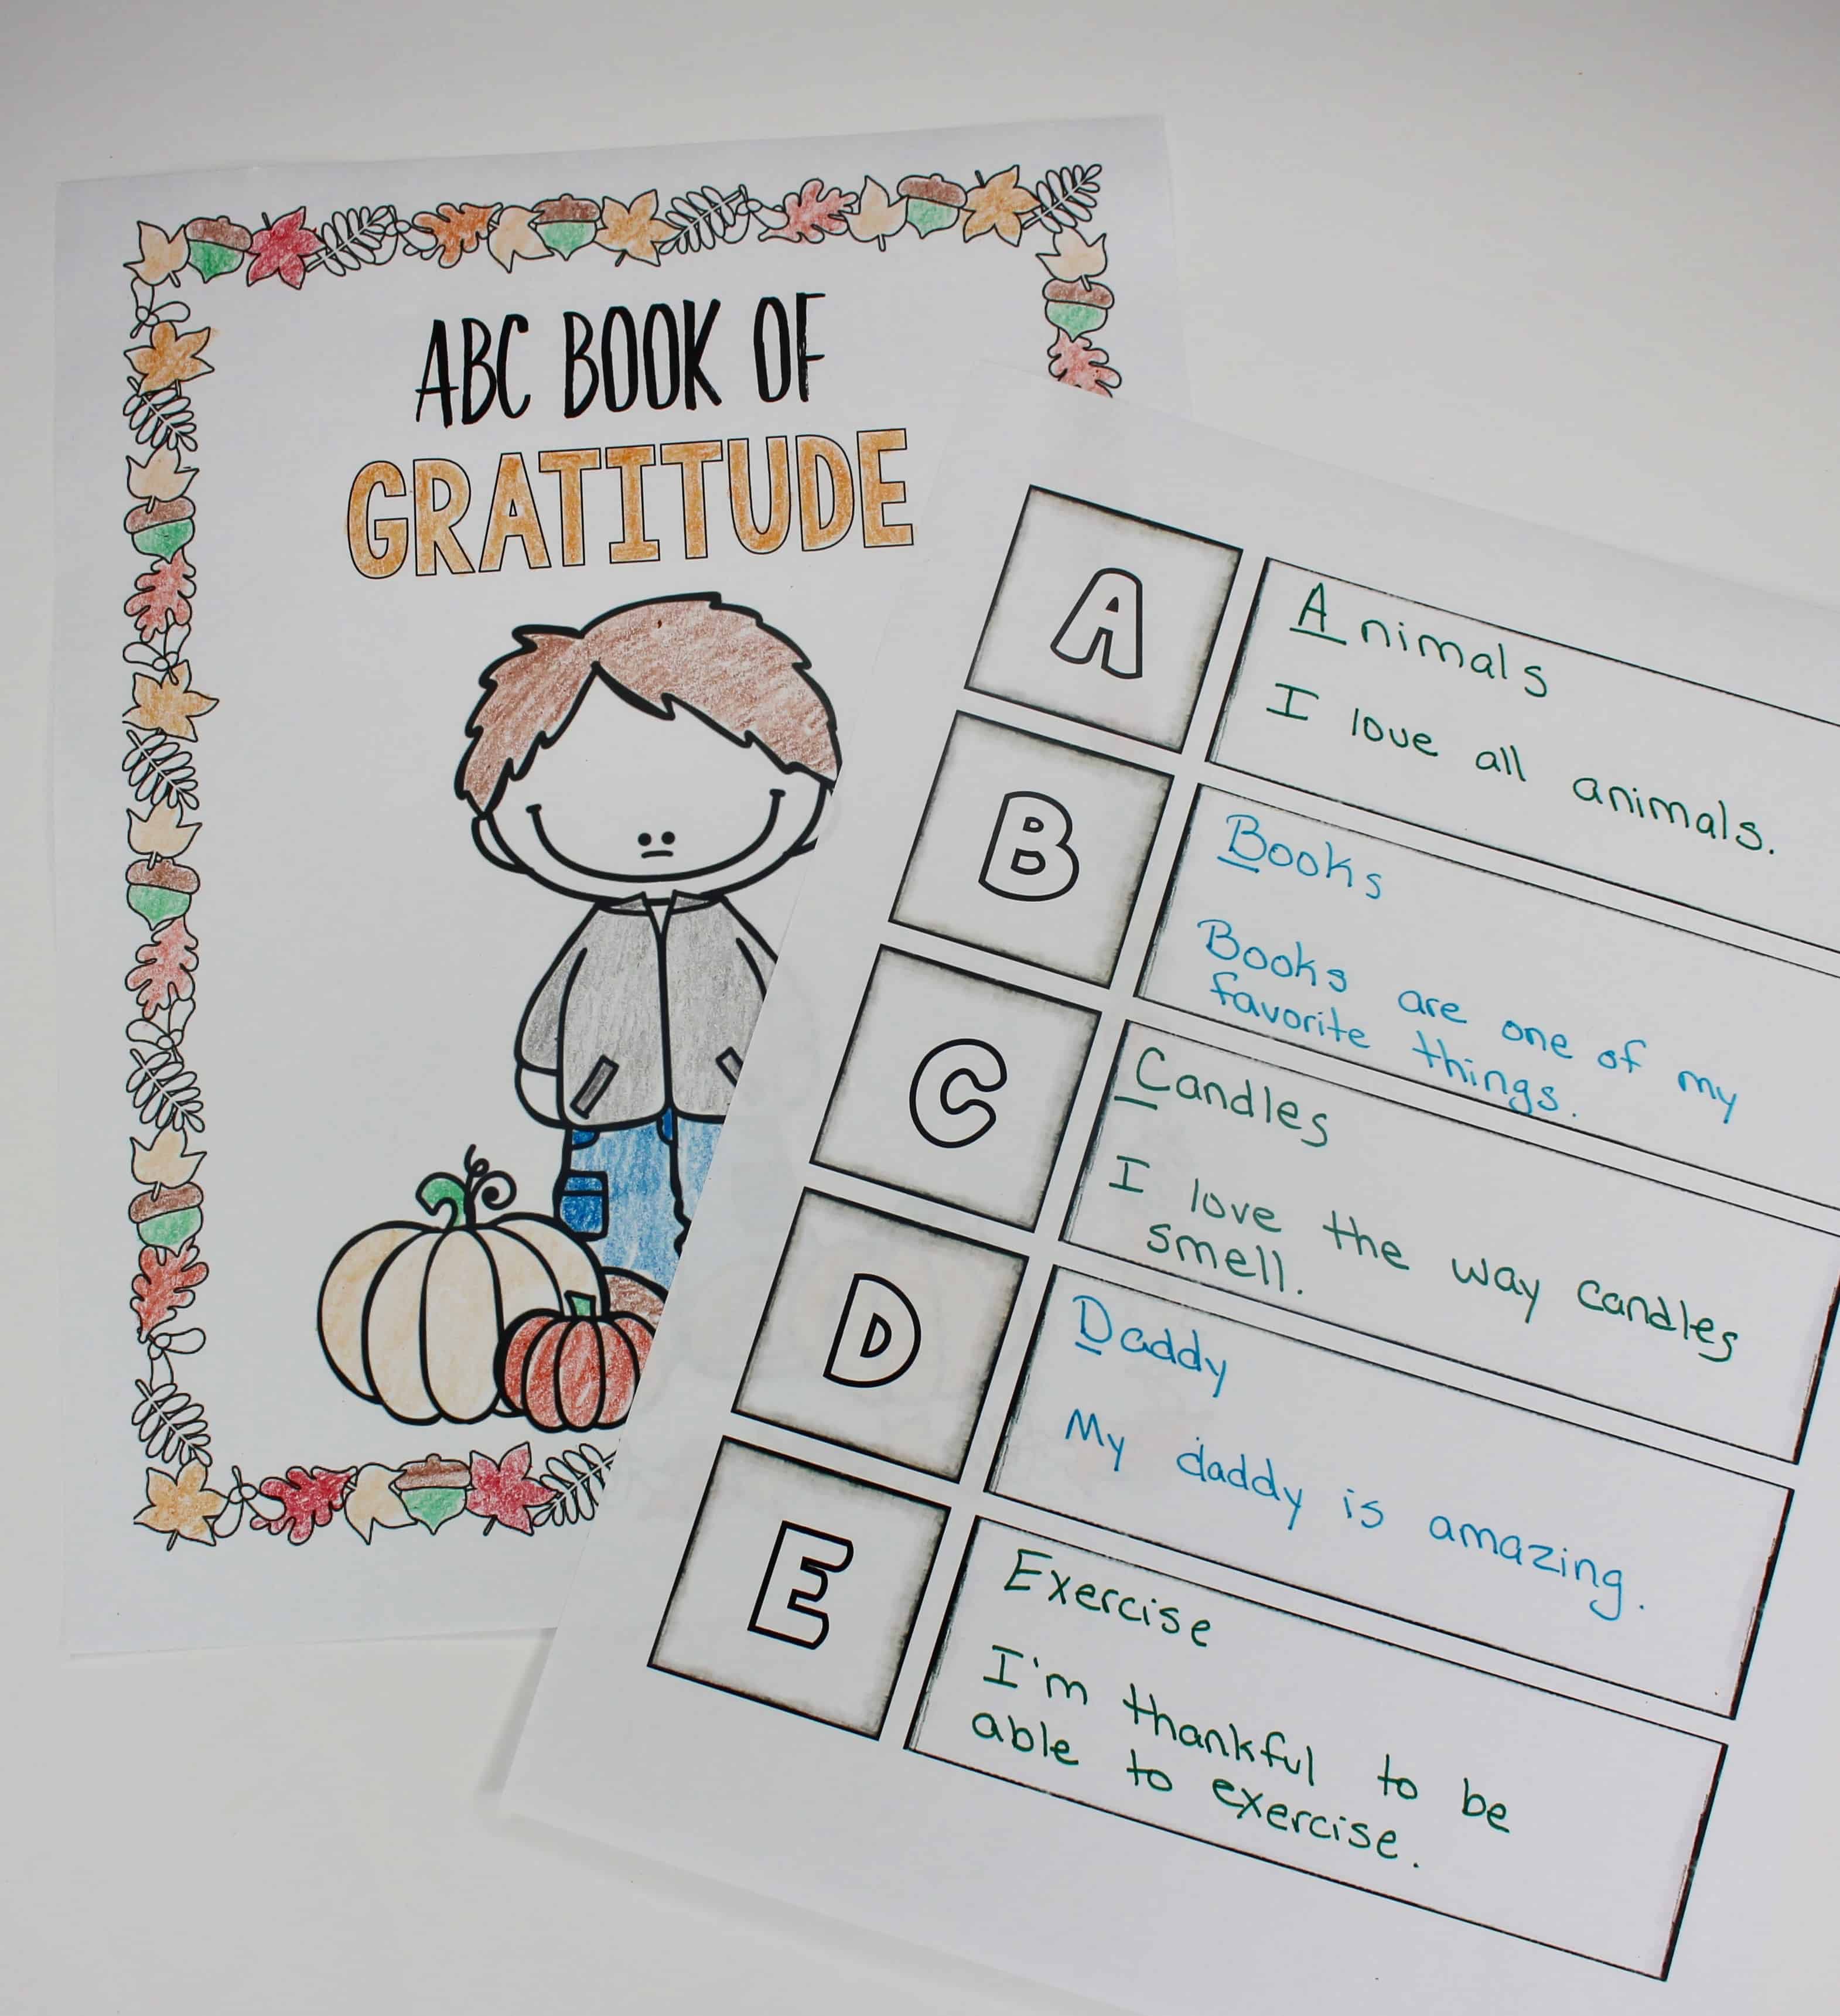 ABC BOOK OF
GRATITUDE
A
Animals
I love all animals.
B
Books
Books are one of my
favorite things.
C
Candles
I love the way candles
smell.
D
Daddy
My daddy is amazing.
E
Exercise
I'm thankful to be
able to exercise.